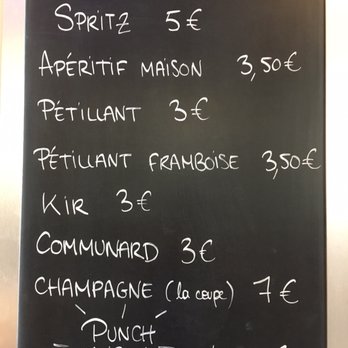 SPRITZ 5€
APÉRITIF MAISON 3,50€
PÉTILLANT 3€
PÉTILLANT FRAMBOISE 3,50€
KIR 3€
COMMUNARD 3€
CHAMPAGNE (la coupe) 7€
PUNCH